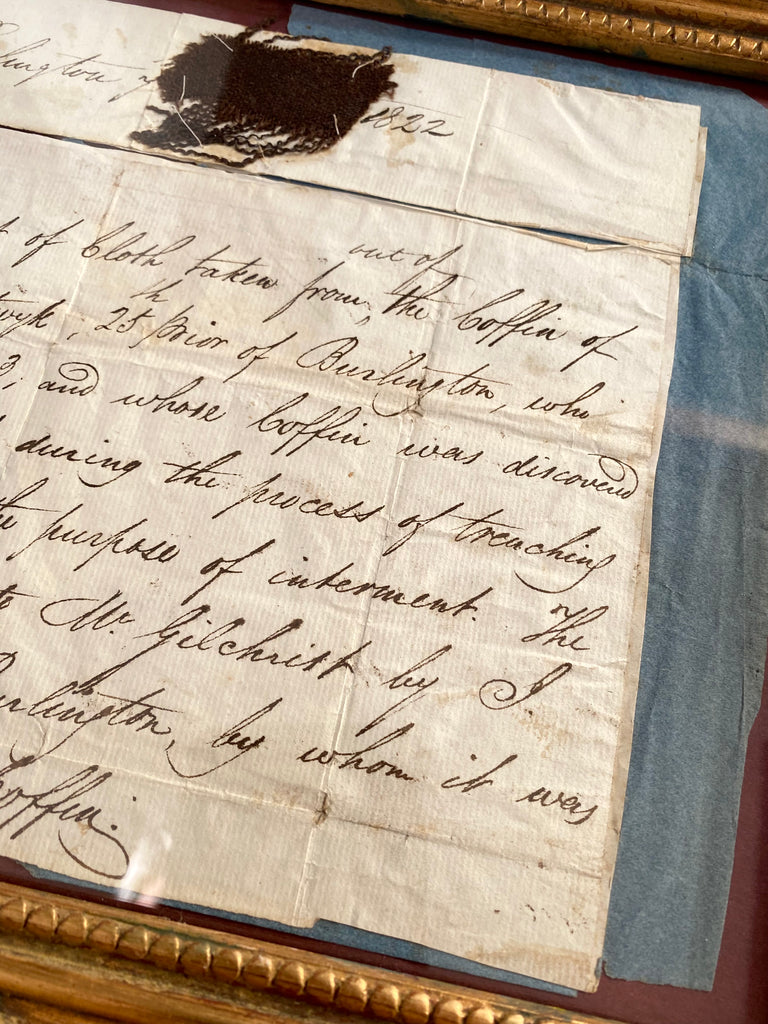 1822
of Cloth taken from the Coffin of
out of
25th Prior of Burlington, who
3; and whose Coffin was discovered
during the process of trenching
purpose of interment. The
to Mr Gilchrist by J
Burlington, by whom it was
Coffin.